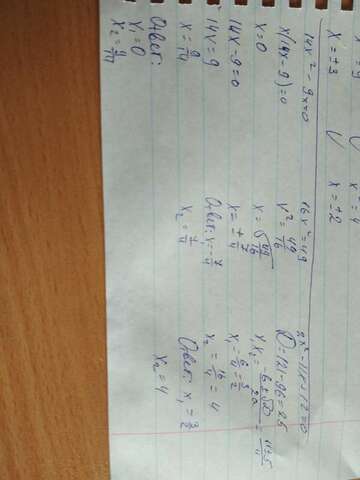 x² = 4
x = ±3
x = ±2
14x² - 9x = 0
x(14x - 9) = 0
x = 0
14x - 9 = 0
14x = 9
x = 9/14
Ответ:
x₁ = 0
x₂ = 9/14
16x² = 49
x² = 49/16
x = √49/16
x = ± 7/4
Ответ: x = -7/4
x₂ = 7/4
2x² - 11x + 12 = 0
D = 121 - 96 = 25
x₁x₂ = -b ± √D / 2a = 11 ± 5 / 4
x₁ = 6/4 = 3/2
x₂ = 16/4 = 4
Ответ: x₁ = 3/2
x₂ = 4